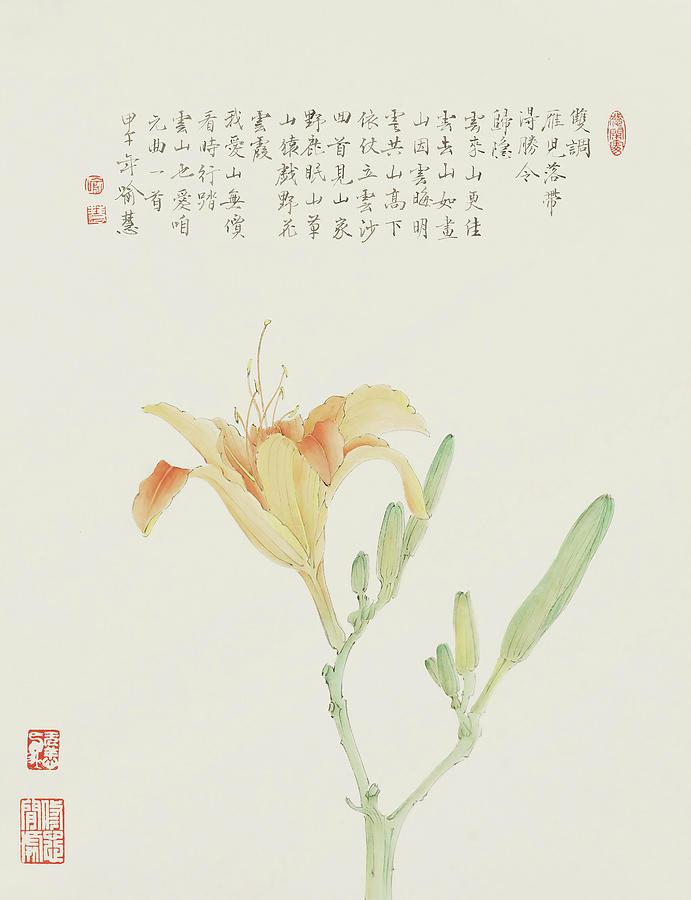 雙調
雁兒落帶
得勝令
歸隱
雲來山更佳
雲去山如畫
山因雲晦明
雲共山高下
依仗立雲沙
回首見山家
野鹿眠山草
山猿戲野花
雲霞
我愛山無價
看時行踏
雲山也愛咱
元曲一首
甲午年喻慧